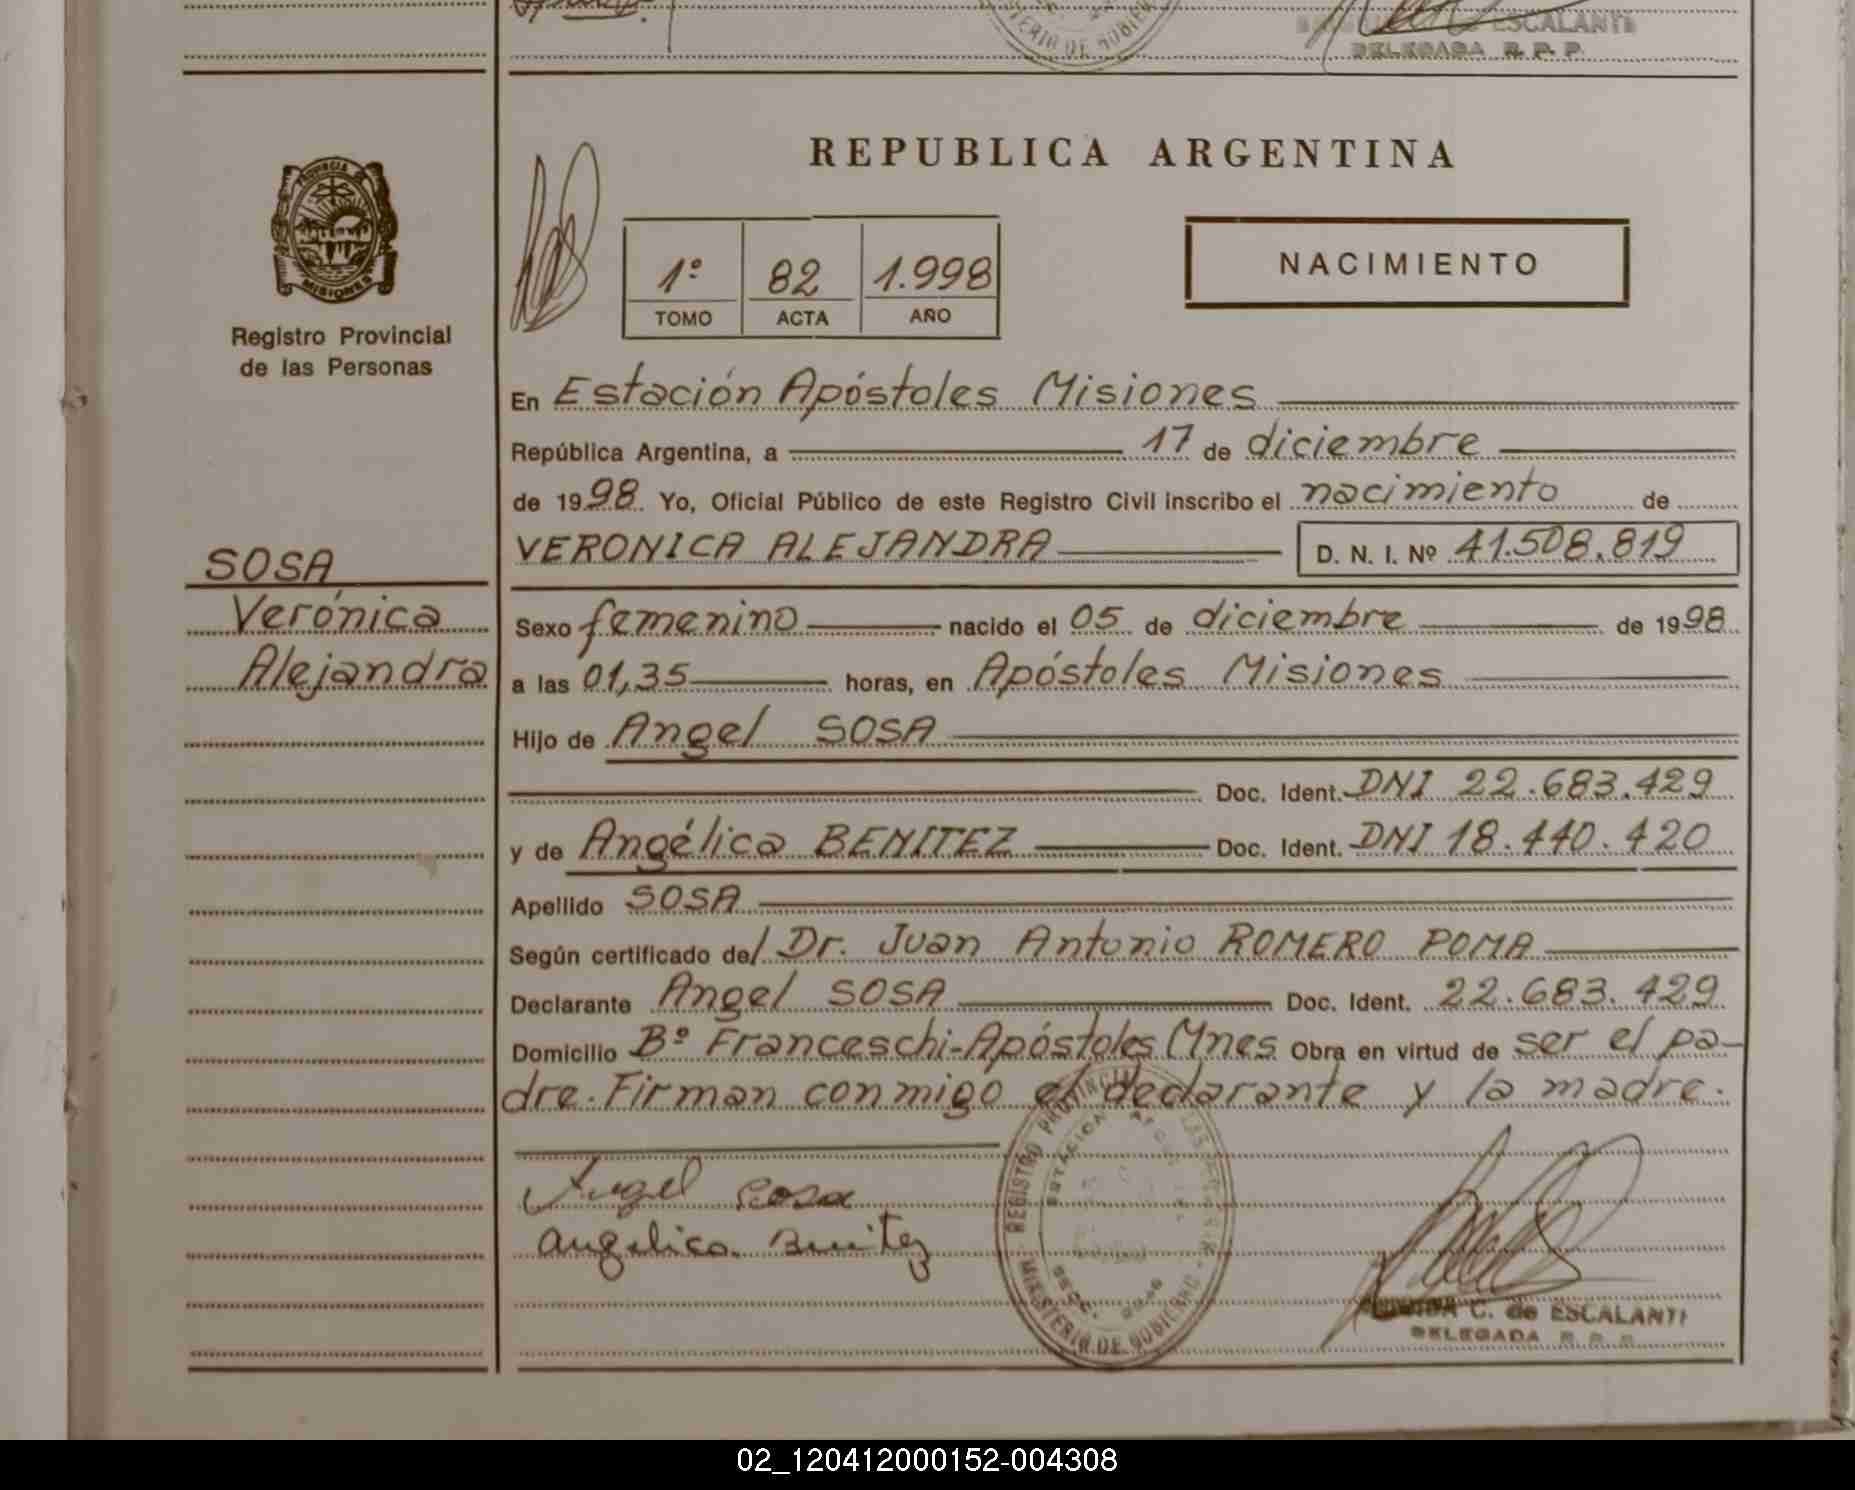 ESCALANTE
DELEGADA R. P. P.
REPUBLICA ARGENTINA
PROVINCIA DE
MISIONES
Registro Provincial
de las Personas
1º 82 1.998
TOMO ACTA AÑO
NACIMIENTO
En Estación Apóstoles Misiones
República Argentina, a 17 de diciembre
de 1998 Yo, Oficial Público de este Registro Civil inscribo el nacimiento de
VERONICA ALEJANDRA D. N. I. Nº 41.508.819
SOSA
Verónica
Alejandra
Sexo femenino nacido el 05 de diciembre de 1998
a las 01,35 horas, en Apóstoles Misiones
Hijo de Angel SOSA
Doc. Ident. DNI 22.683.429
y de Angélica BENITEZ Doc. Ident. DNI 18.440.420
Apellido SOSA
Según certificado del Dr. Juan Antonio ROMERO POMA
Declarante Angel SOSA Doc. Ident. 22.683.429
Domicilio Bº Franceschi-Apóstoles Mnes Obra en virtud de ser el pa-
dre. Firman conmigo el declarante y la madre.
Angel Sosa
Angelica Benitez
REGISTRO PROVINCIAL
MINISTERIO DE GOBIERNO
C. de ESCALANTE
DELEGADA R. P. P.
02_120412000152-004308